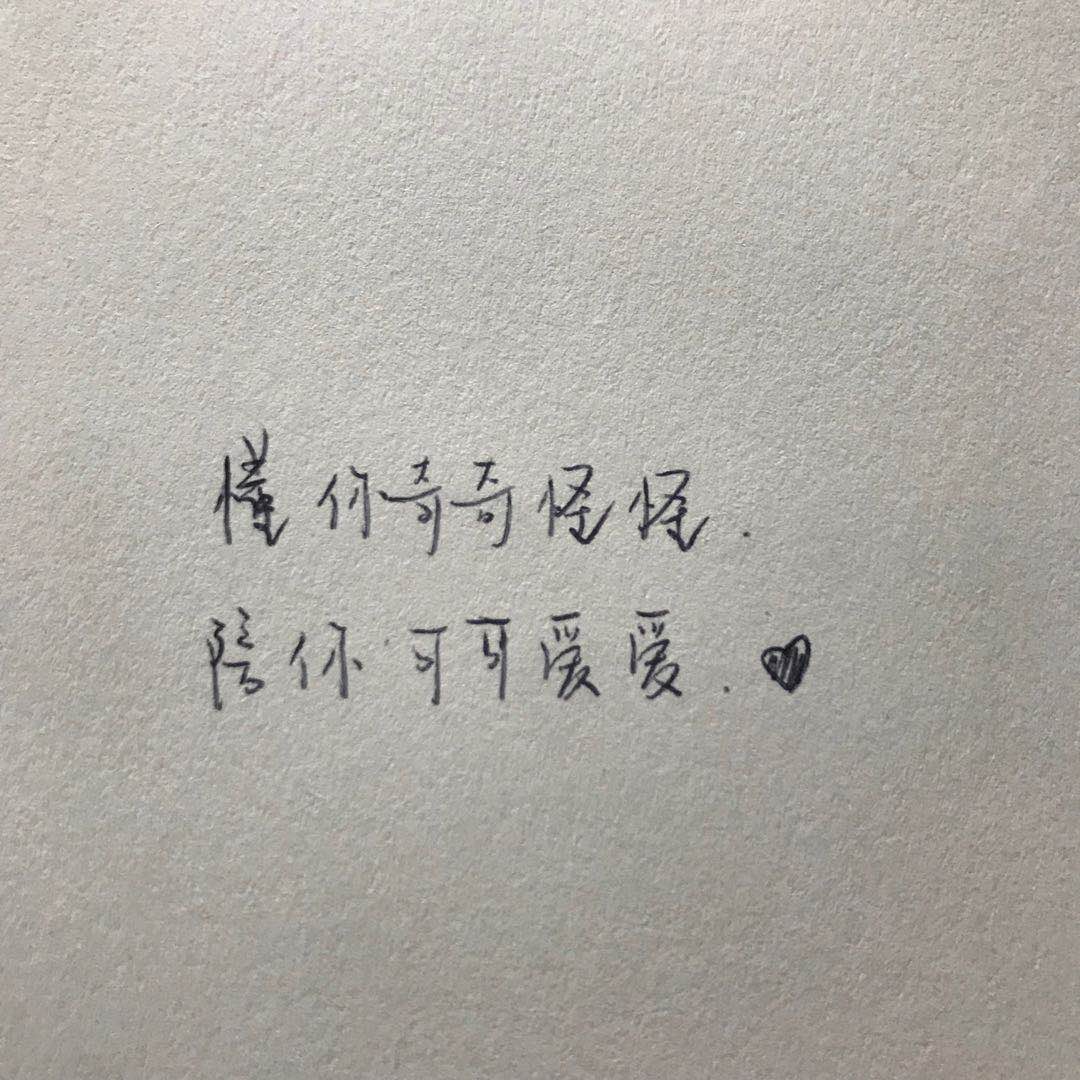 懂你奇奇怪怪.
陪你可可爱爱.♥